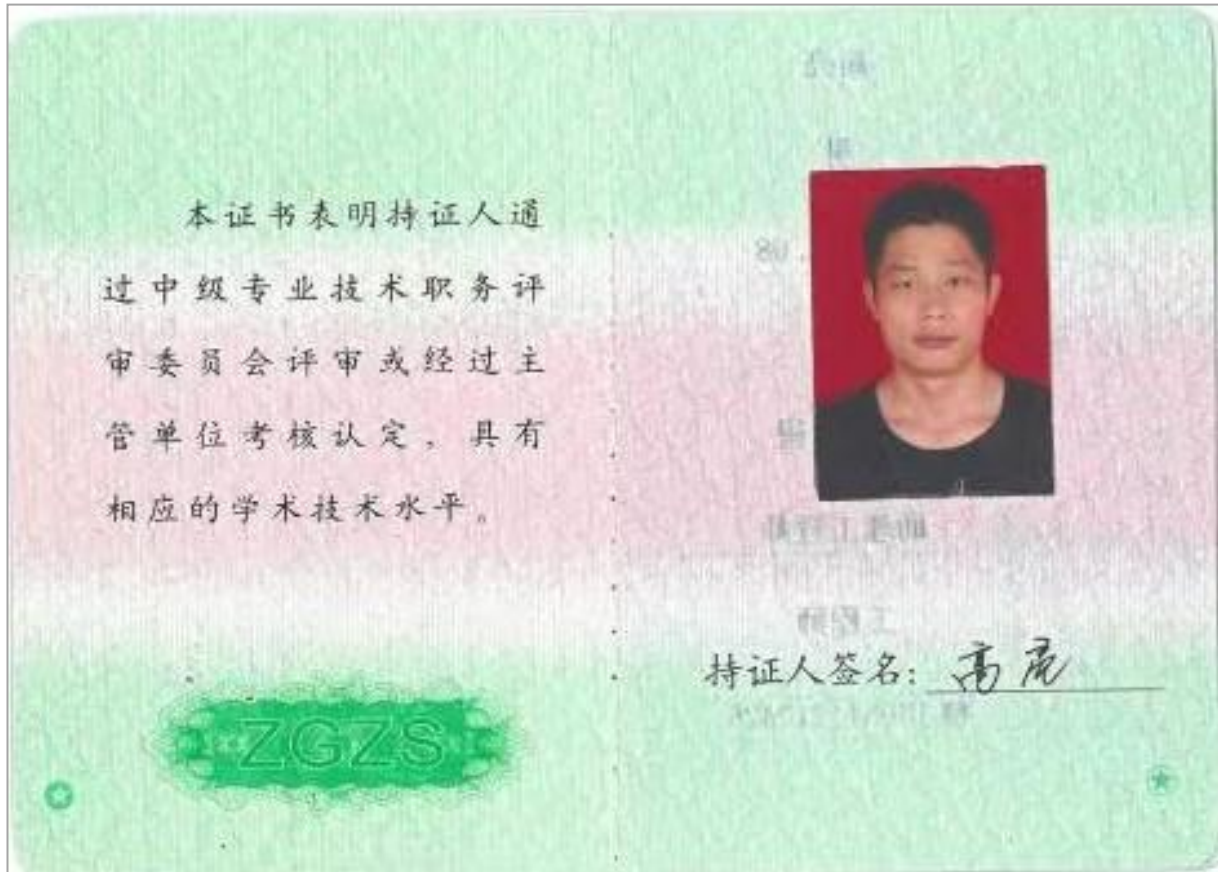 本证书表明持证人通
过中级专业技术职务评
审委员会评审或经过主
管单位考核认定，具有
相应的学术技术水平。
ZGZS
持证人签名：高虎